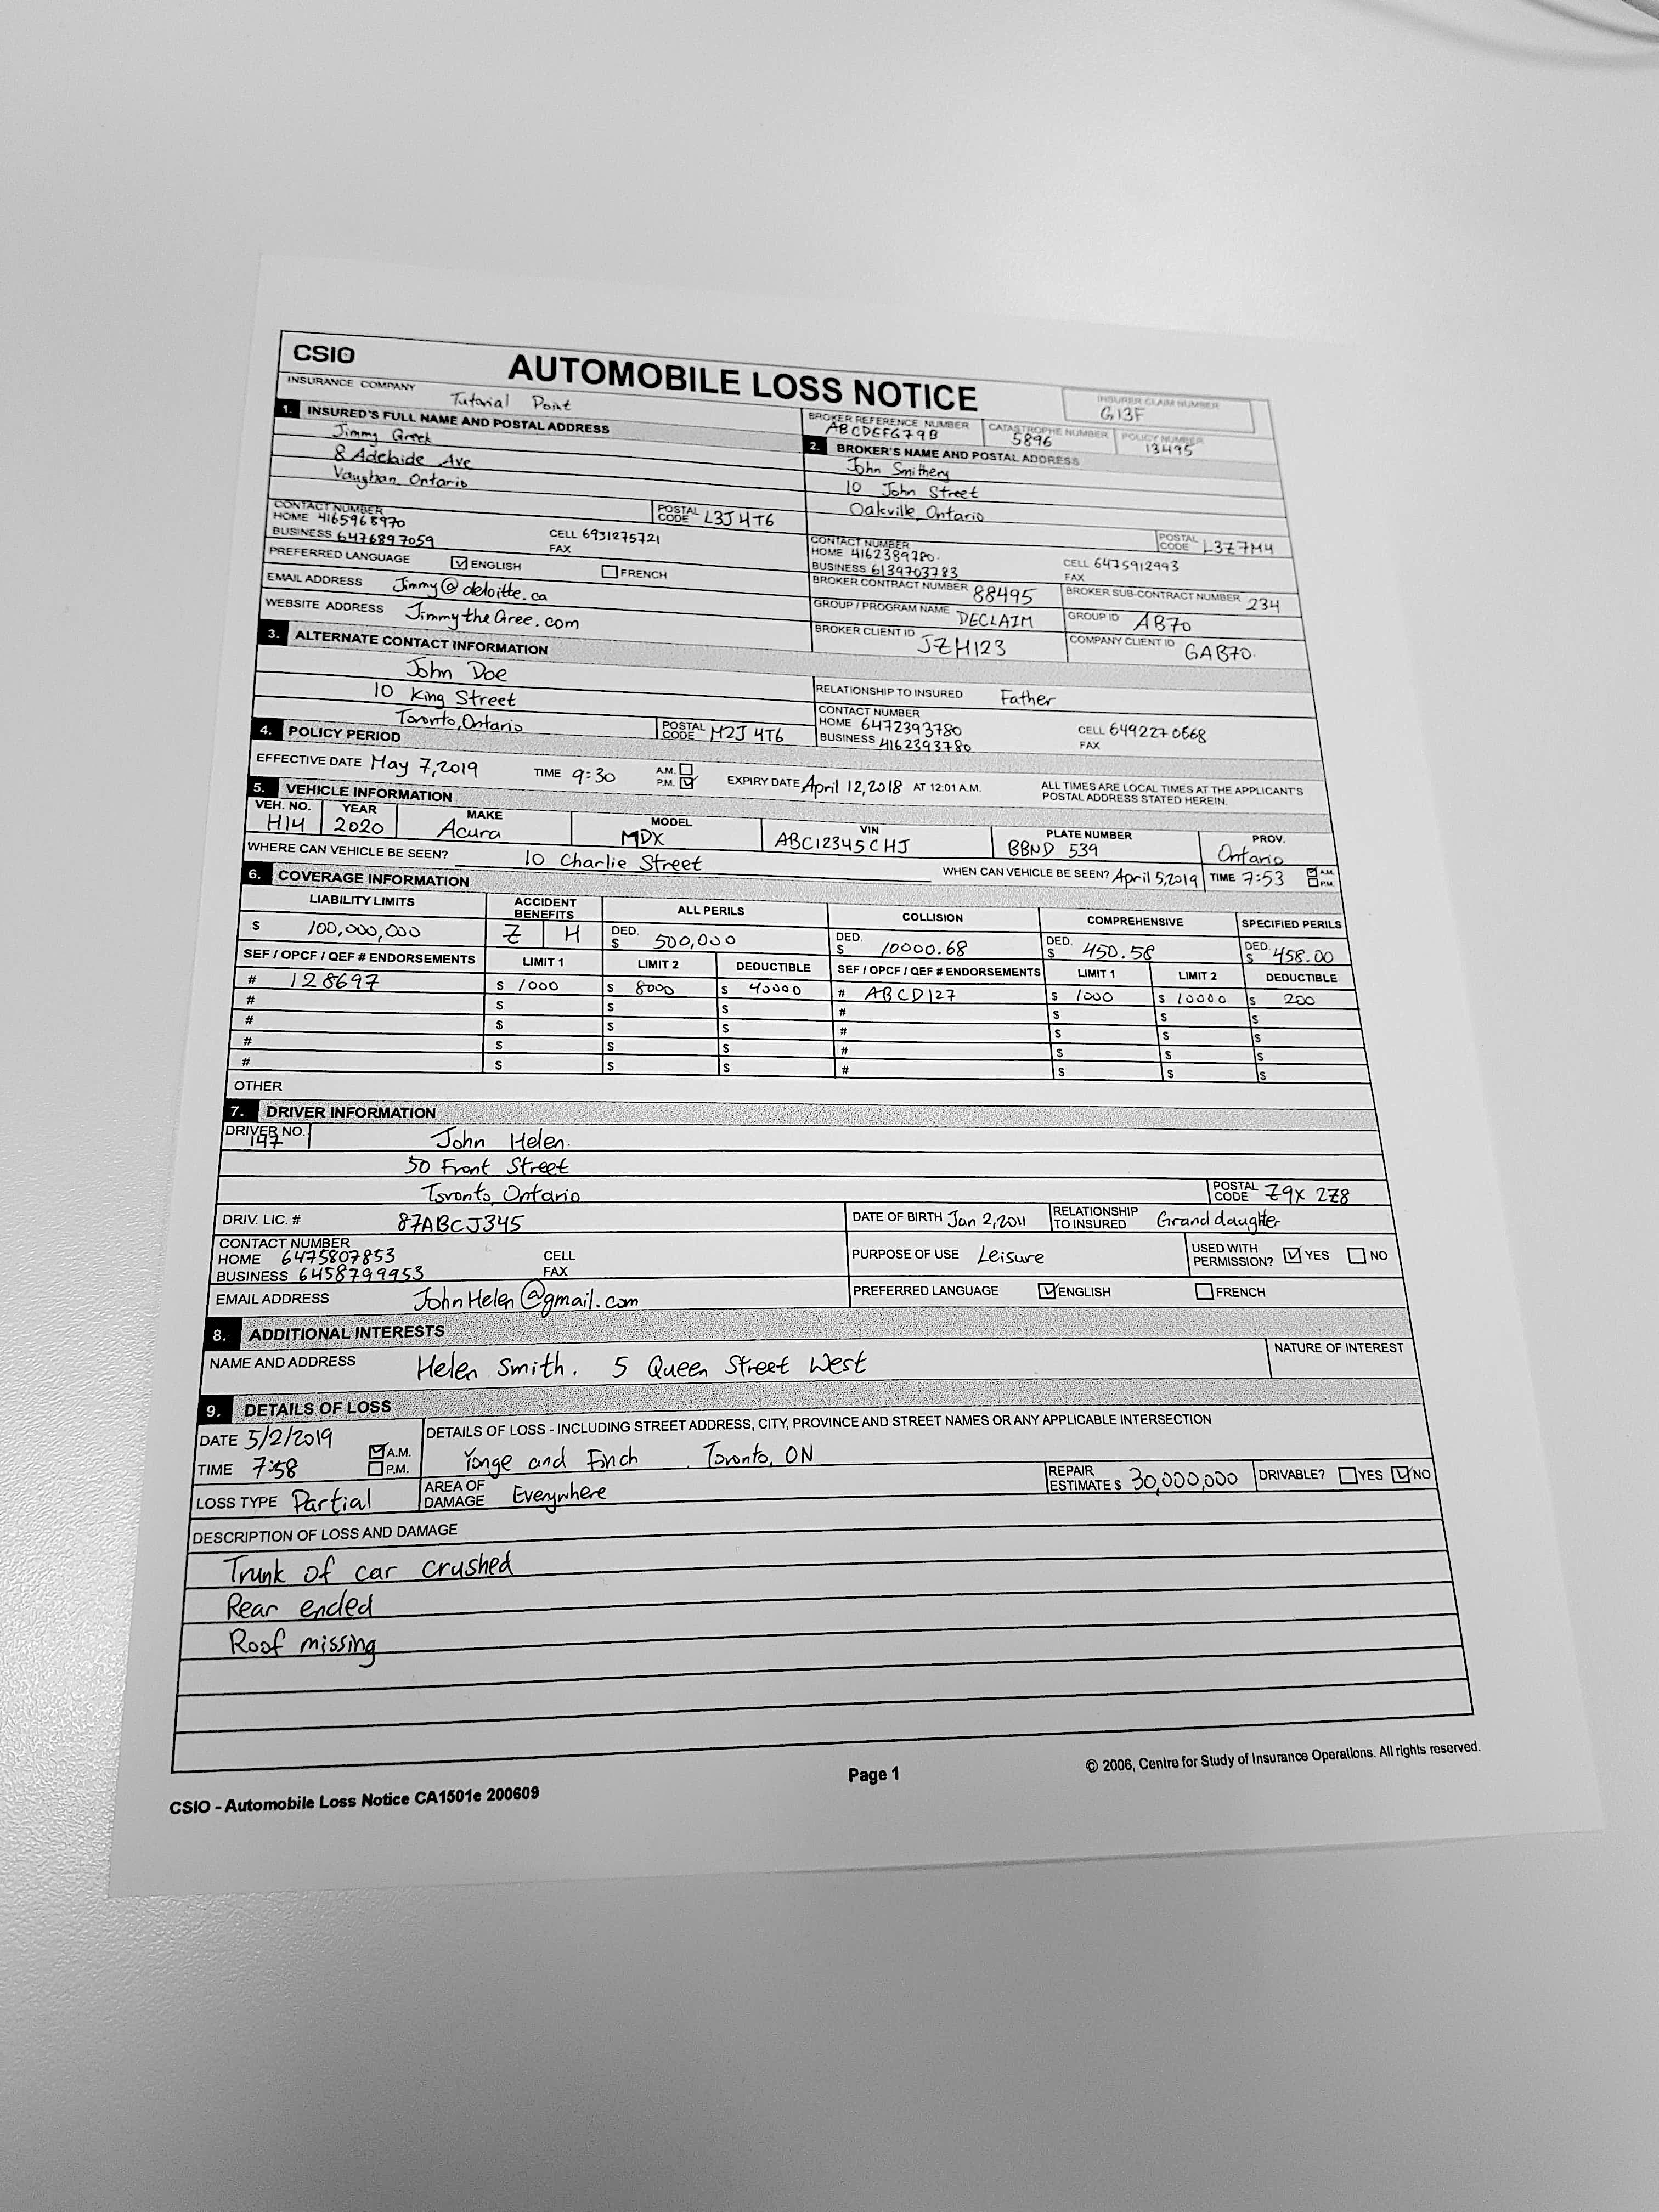 CSIO
AUTOMOBILE LOSS NOTICE
INSURER CLAIM NUMBER
G13F
INSURANCE COMPANY Tutorial Point
BROKER REFERENCE NUMBER ABCDEFG79B
CATASTROPHE NUMBER 5896
POLICY NUMBER 13495
1. INSURED'S FULL NAME AND POSTAL ADDRESS
Jimmy Greek
8 Adelaide Ave
Vaughan, Ontario
POSTAL CODE L3J 4T6
CONTACT NUMBER
HOME 4165968970
CELL 6931275721
BUSINESS 6476897059
FAX
PREFERRED LANGUAGE ENGLISH FRENCH
EMAIL ADDRESS Jimmy@deloitte.ca
WEBSITE ADDRESS JimmytheGree.com
2. BROKER'S NAME AND POSTAL ADDRESS
John Smithery
10 John Street
Oakville, Ontario
POSTAL CODE L3Z7M4
CONTACT NUMBER
HOME 4162389780.
CELL 6475912993
BUSINESS 6139703783
FAX
BROKER CONTRACT NUMBER 88495
BROKER SUB-CONTRACT NUMBER 234
GROUP / PROGRAM NAME DECLAIM
GROUP ID AB70
BROKER CLIENT ID JZH123
COMPANY CLIENT ID GAB70.
3. ALTERNATE CONTACT INFORMATION
John Doe
10 King Street
Toronto, Ontario
POSTAL CODE M2J 4T6
RELATIONSHIP TO INSURED Father
CONTACT NUMBER
HOME 6472393780
CELL 6492270668
BUSINESS 4162393780
FAX
4. POLICY PERIOD
EFFECTIVE DATE May 7,2019 TIME 9:30 A.M. P.M. EXPIRY DATE April 12,2018 AT 12:01 A.M.
ALL TIMES ARE LOCAL TIMES AT THE APPLICANT'S
POSTAL ADDRESS STATED HEREIN.
5. VEHICLE INFORMATION
VEH. NO. YEAR MAKE MODEL VIN PLATE NUMBER PROV.
H14 2020 Acura MDX ABC12345CHJ BBND 539 Ontario
WHERE CAN VEHICLE BE SEEN? 10 Charlie Street WHEN CAN VEHICLE BE SEEN? April 5,2019 TIME 7:53 A.M. P.M.
6. COVERAGE INFORMATION
LIABILITY LIMITS ACCIDENT BENEFITS ALL PERILS COLLISION COMPREHENSIVE SPECIFIED PERILS
$ 100,000,000 Z H DED. $ 500,000 DED. $ 10000.68 DED. $ 450.58 DED. $ 458.00
SEF / OPCF / QEF # ENDORSEMENTS LIMIT 1 LIMIT 2 DEDUCTIBLE SEF / OPCF / QEF # ENDORSEMENTS LIMIT 1 LIMIT 2 DEDUCTIBLE
# 128697 $ 1000 $ 8000 $ 40000 # ABCD127 $ 1000 $ 10000 $ 200
# $ $ $ # $ $ $
# $ $ $ # $ $ $
# $ $ $ # $ $ $
# $ $ $ # $ $ $
OTHER
7. DRIVER INFORMATION
DRIVER NO. 147
John Helen.
50 Front Street
Toronto, Ontario
POSTAL CODE Z9X 2Z8
DRIV. LIC. # 87ABCJ345
DATE OF BIRTH Jan 2,2011
RELATIONSHIP TO INSURED Granddaughter
CONTACT NUMBER
HOME 6475807853
CELL
BUSINESS 6458799953
FAX
PURPOSE OF USE Leisure
USED WITH PERMISSION? YES NO
EMAIL ADDRESS JohnHelen@gmail.com
PREFERRED LANGUAGE ENGLISH FRENCH
8. ADDITIONAL INTERESTS
NAME AND ADDRESS Helen Smith. 5 Queen Street West
NATURE OF INTEREST
9. DETAILS OF LOSS
DATE 5/2/2019
TIME 7:58 A.M. P.M.
DETAILS OF LOSS - INCLUDING STREET ADDRESS, CITY, PROVINCE AND STREET NAMES OR ANY APPLICABLE INTERSECTION
Yonge and Finch Toronto, ON
LOSS TYPE Partial
AREA OF DAMAGE Everywhere
REPAIR ESTIMATE $ 30,000,000
DRIVABLE? YES NO
DESCRIPTION OF LOSS AND DAMAGE
Trunk of car crushed
Rear ended
Roof missing
CSIO - Automobile Loss Notice CA1501e 200609
Page 1
© 2006, Centre for Study of Insurance Operations. All rights reserved.